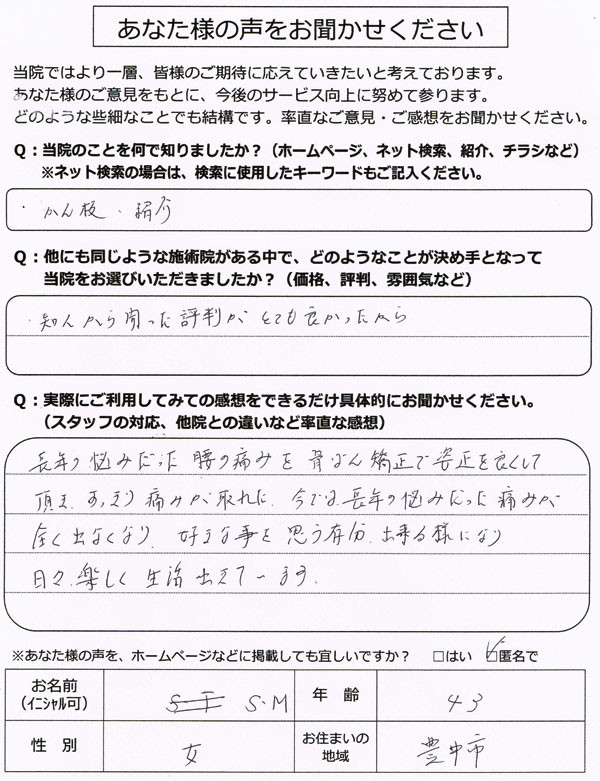 あなた様の声をお聞かせください
当院ではより一層、皆様のご期待に応えていきたいと考えております。
あなた様のご意見をもとに、今後のサービス向上に努めて参ります。
どのような些細なことでも結構です。率直なご意見・ご感想をお聞かせください。
Q：当院のことを何で知りましたか？（ホームページ、ネット検索、紹介、チラシなど）
※ネット検索の場合は、検索に使用したキーワードもご記入ください。
・かん板・紹介
Q：他にも同じような施術院がある中で、どのようなことが決め手となって
当院をお選びいただきましたか？（価格、評判、雰囲気など）
・知人から聞いた評判がとても良かったから
Q：実際にご利用してみての感想をできるだけ具体的にお聞かせください。
（スタッフの対応、他院との違いなど率直な感想）
長年の悩みだった腰の痛みを骨ばん矯正で姿正を良くして
頂き、あっさり痛みが取れた、今では、長年の悩みだった痛みが
全く出なくなり、好きな事を思う存分、出来る様になり
日々、楽しく生活出来ています。
※あなた様の声を、ホームページなどに掲載しても宜しいですか？ □はい ☑匿名で
お名前 S・M 年 齢 43
（ｲﾆｼｬﾙ可）
性 別 女 お住まいの 豊中市
地域